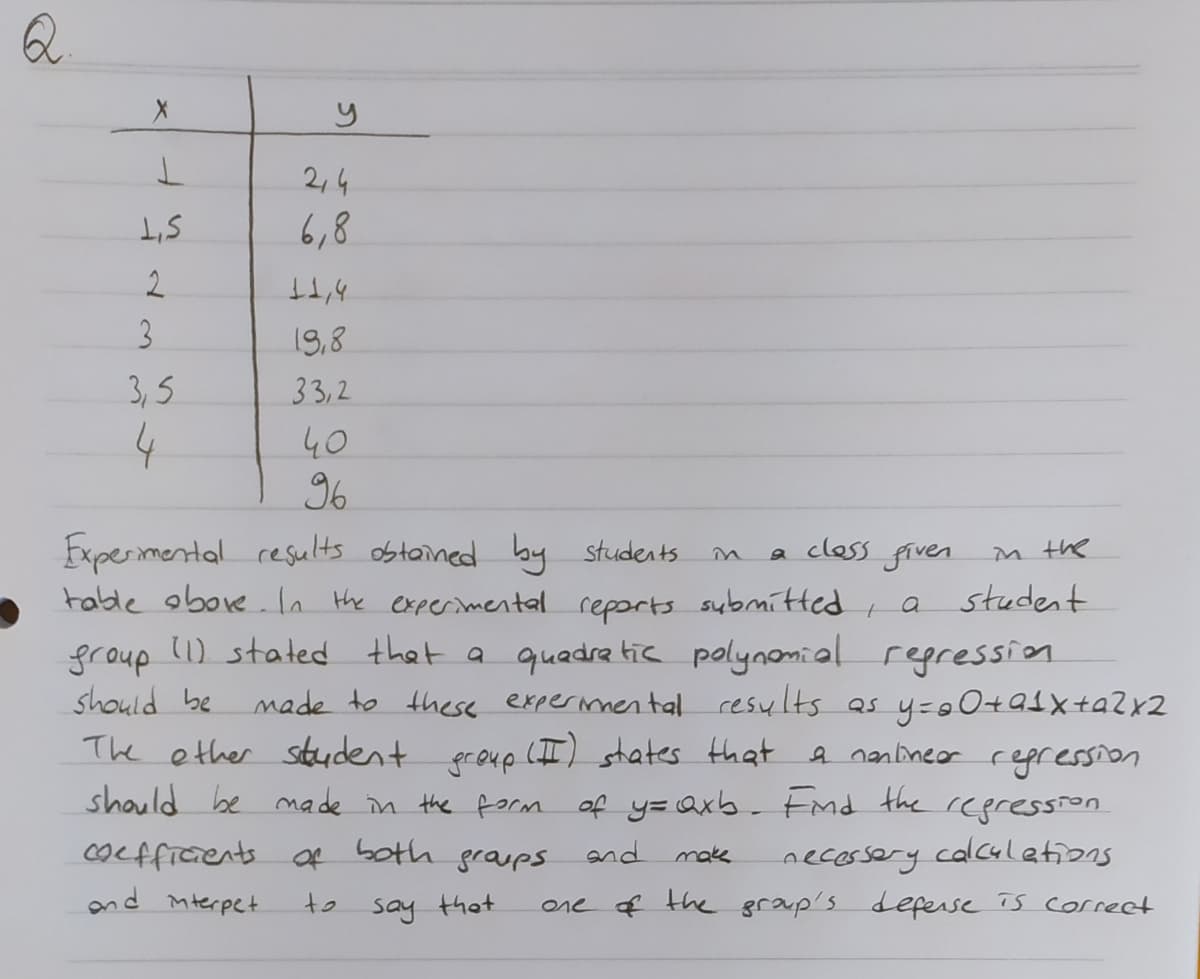 Q.
x y
1 2,4
1,5 6,8
2 11,4
3 19,8
3,5 33,2
4 40
96
Experimental results obtained by students in a class given in the
table above. In the experimental reports submitted, a student
group (1) stated that a quadratic polynomial regression
should be made to these experimental results as y=a0+a1x+a2x2
The other student group (II) states that a nonlinear regression
should be made in the form of y=axb. Find the regression
coefficients of both groups and make necessary calculations
and interpet to say that one of the group's defense is correct